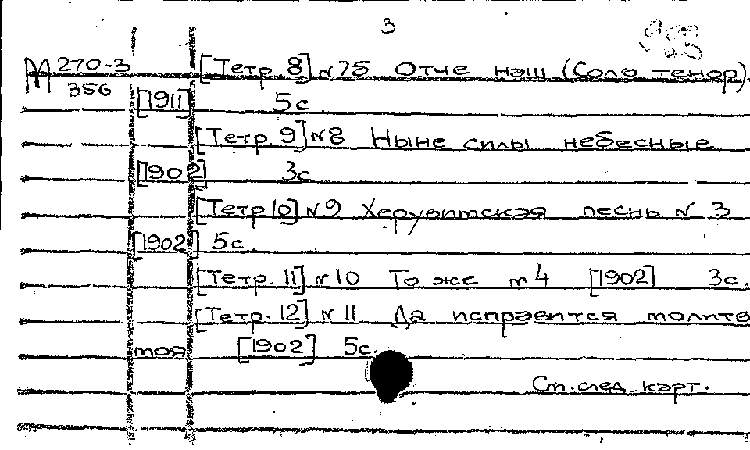 3
М 270-3 [Тетр. 8] №25 Отче наш (Соло тенор).
356 [1911] 5с
[Тетр. 9] №8 Ныне силы небесные
[1902] 3с
[Тетр 10] №9 Херувимская песнь № 3
[1902] 5с.
[Тетр. 11] №10 То же №4 [1902] 3с.
[Тетр. 12] № 11 Да исправится молитв
моя [1902] 5с.
См. след карт.